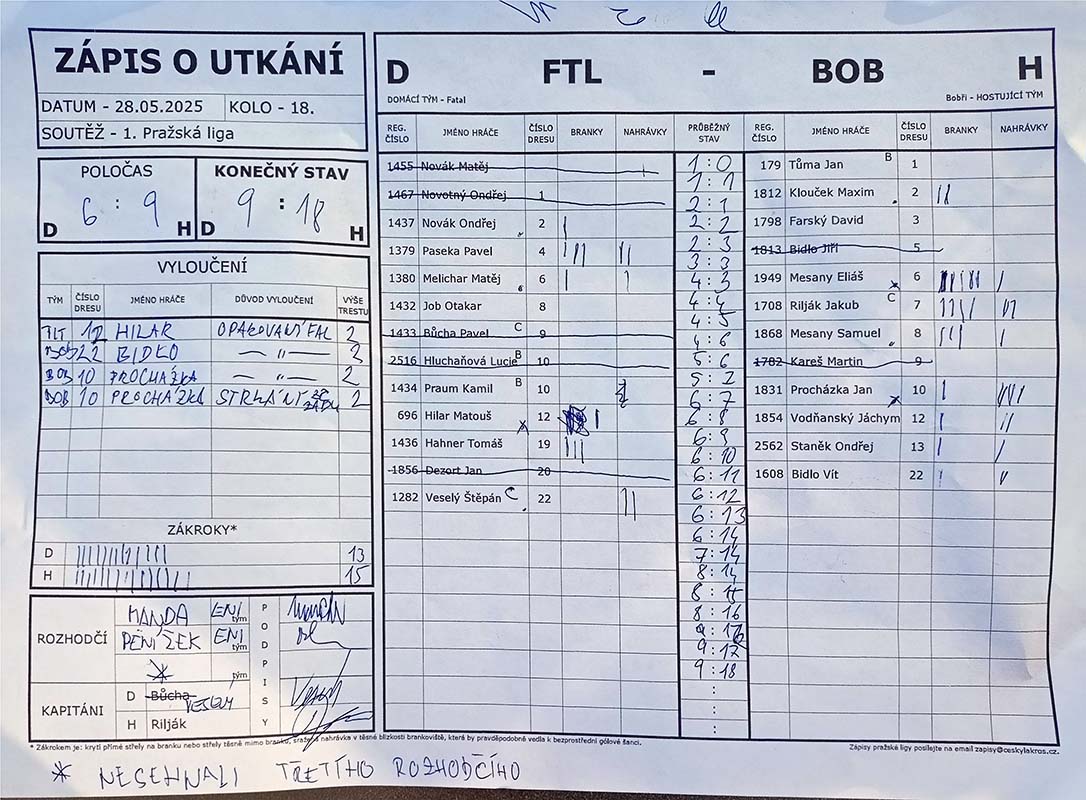 ZÁPIS O UTKÁNÍ
DATUM - 28.05.2025 KOLO - 18.
SOUTĚŽ - 1. Pražská liga
POLOČAS
D 6 : 9 H
KONEČNÝ STAV
D 9 : 18 H
VYLOUČENÍ
TÝM ČÍSLO DRESU JMÉNO HRÁČE DŮVOD VYLOUČENÍ VÝŠE TRESTU
12 HILAR OPAKOVANÍ FAL 2
BOB 22 BIDLO — " — 2
BOB 10 PROCHÁZKA — " — 2
BOB 10 PROCHÁZKA 2
ZÁKROKY*
D 13
H 15
ROZHODČÍ
MANDA ENI tým
PENÍZEK ENI tým
* tým
PODPISY
KAPITÁNI
D Bůcha VESELÝ
H Rilják
D FTL - BOB H
DOMÁCÍ TÝM - Fatal Bobři - HOSTUJÍCÍ TÝM
REG. ČÍSLO JMÉNO HRÁČE ČÍSLO DRESU BRANKY NAHRÁVKY
1455 Novák Matěj
1467 Novotný Ondřej 1
1437 Novák Ondřej 2
1379 Paseka Pavel 4
1380 Melichar Matěj 6
1432 Job Otakar 8
1433 Bůcha Pavel C 9
2516 Hluchaňová Lucie B 10
1434 Praum Kamil B 10
696 Hilar Matouš 12
1436 Hahner Tomáš 19
1856 Dezort Jan 20
1282 Veselý Štěpán C 22
PRŮBĚŽNÝ STAV
1:0
1:1
2:1
2:2
2:3
3:3
4:3
4:4
4:5
4:6
5:6
5:7
6:7
6:8
6:9
6:10
6:11
6:12
6:13
6:14
7:14
8:14
8:15
8:16
9:16
9:17
9:18
:
:
REG. ČÍSLO JMÉNO HRÁČE ČÍSLO DRESU BRANKY NAHRÁVKY
179 Tůma Jan B 1
1812 Klouček Maxim 2
1798 Farský David 3
1813 Bidlo Jiří 5
1949 Mesany Eliáš 6
1708 Rilják Jakub C 7
1868 Mesany Samuel 8
1782 Kareš Martin 9
1831 Procházka Jan 10
1854 Vodňanský Jáchym 12
2562 Staněk Ondřej 13
1608 Bidlo Vít 22
* Zákrokem je: krytí přímé střely na branku nebo střely těsně mimo branku, sražená nahrávka v těsné blízkosti brankoviště, která by pravděpodobně vedla k bezprostřední gólové šanci.
Zápisy pražské ligy posílejte na email zapisy@ceskylakros.cz.
* NESEHNALI TŘETÍHO ROZHODČÍHO